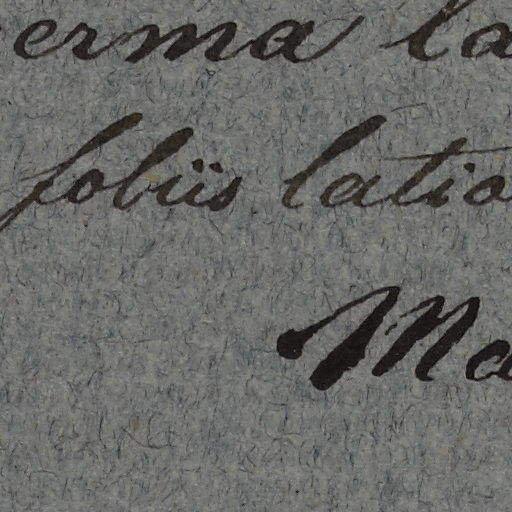 erma la
foliis latio
Ma